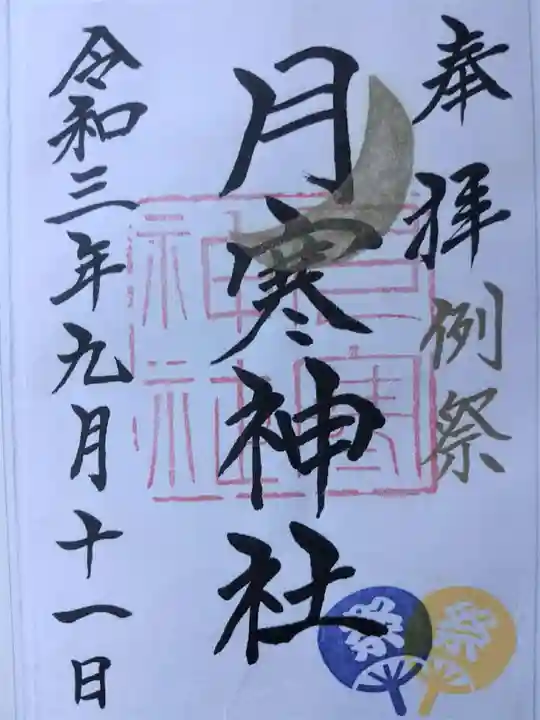 奉拝
例祭
月寒神社
月寒神社
令和三年九月十一日
祭
祭